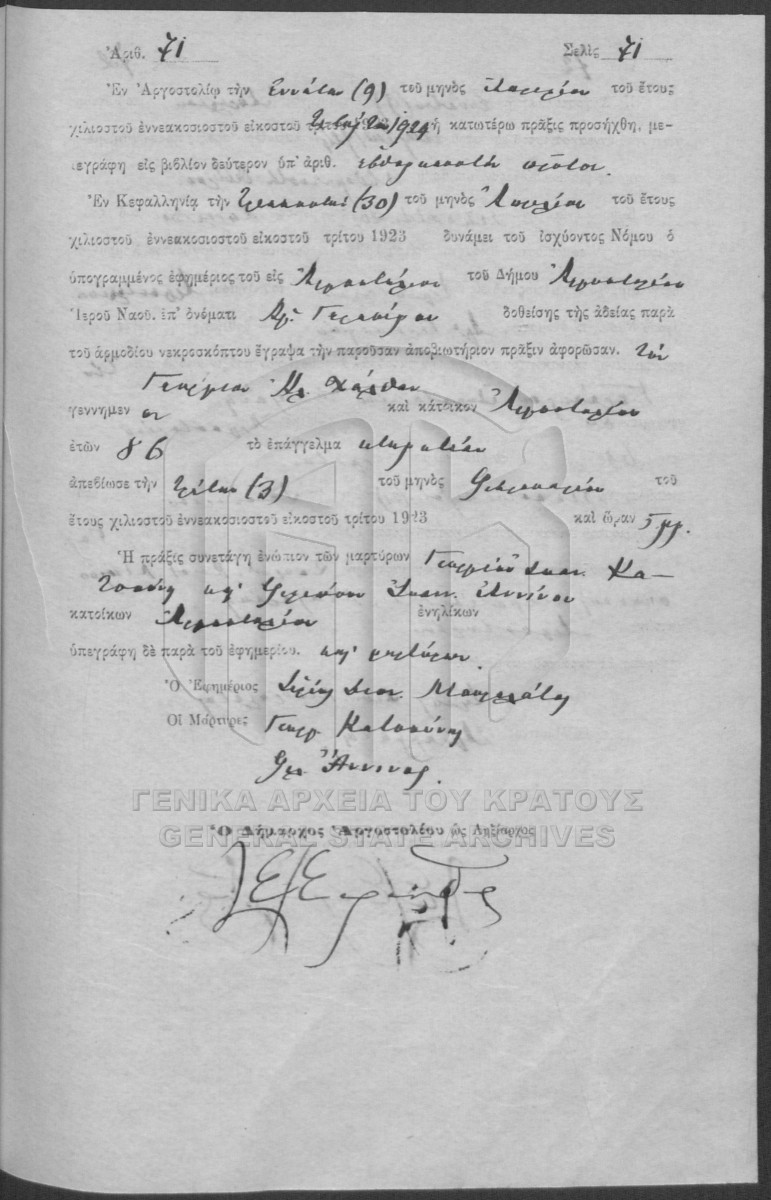 Ἀριθ. 71 Σελὶς 71
Ἐν Ἀργοστολίῳ τὴν ἐννάτην (9) τοῦ μηνὸς τοῦ ἔτους
χιλιοστοῦ ἐννεακοσιοστοῦ εἰκοστοῦ 1924 ἡ κατωτέρω πρᾶξις προσήχθη, με-
τεγράφη εἰς βιβλίον δεύτερον ὑπ' ἀριθ. ἑβδομηκοστὸν πρῶτον.
Ἐν Κεφαλληνίᾳ τὴν τριακοστὴν (30) τοῦ μηνὸς τοῦ ἔτους
χιλιοστοῦ ἐννεακοσιοστοῦ εἰκοστοῦ τρίτου 1923 δυνάμει τοῦ ἰσχύοντος Νόμου ὁ
ὑπογραμμένος ἐφημέριος τοῦ εἰς Ἀργοστόλιον τοῦ Δήμου Ἀργοστολίου
Ἱεροῦ Ναοῦ. ἐπ' ὀνόματι Ἁγ. Γερασίμου δοθείσης τῆς ἀδείας παρὰ
τοῦ ἁρμοδίου νεκροσκόπου ἔγραψα τὴν παροῦσαν ἀποβιωτήριον πρᾶξιν ἀφορῶσαν. τὸν
Γεώργιον
γεννημεν ον καὶ κάτοικον Ἀργοστολίου
ἐτῶν 86 τὸ ἐπάγγελμα κτηματίαν
ἀπεβίωσε τὴν τρίτην (3) τοῦ μηνὸς Φεβρουαρίου τοῦ
ἔτους χιλιοστοῦ ἐννεακοσιοστοῦ εἰκοστοῦ τρίτου 1923 καὶ ὥραν 5 μμ.
Ἡ πρᾶξις συνετάγη ἐνώπιον τῶν μαρτύρων Γεωργίου Διον. Κα-
τσούνη καὶ Ἰωαν. Ἀννίνου
κατοίκων Ἀργοστολίου ἐνηλίκων
ὑπεγράφη δὲ παρὰ τοῦ ἐφημερίου. καὶ μαρτύρων.
Ὁ Ἐφημέριος Διον.
Οἱ Μάρτυρες Γεωρ. Κατσούνης
Ἄννινος.
ΓΕΝΙΚΑ ΑΡΧΕΙΑ ΤΟΥ ΚΡΑΤΟΥΣ
GENERAL STATE ARCHIVES
Ὁ Δήμαρχος Ἀργοστολίου ὡς Ληξίαρχος